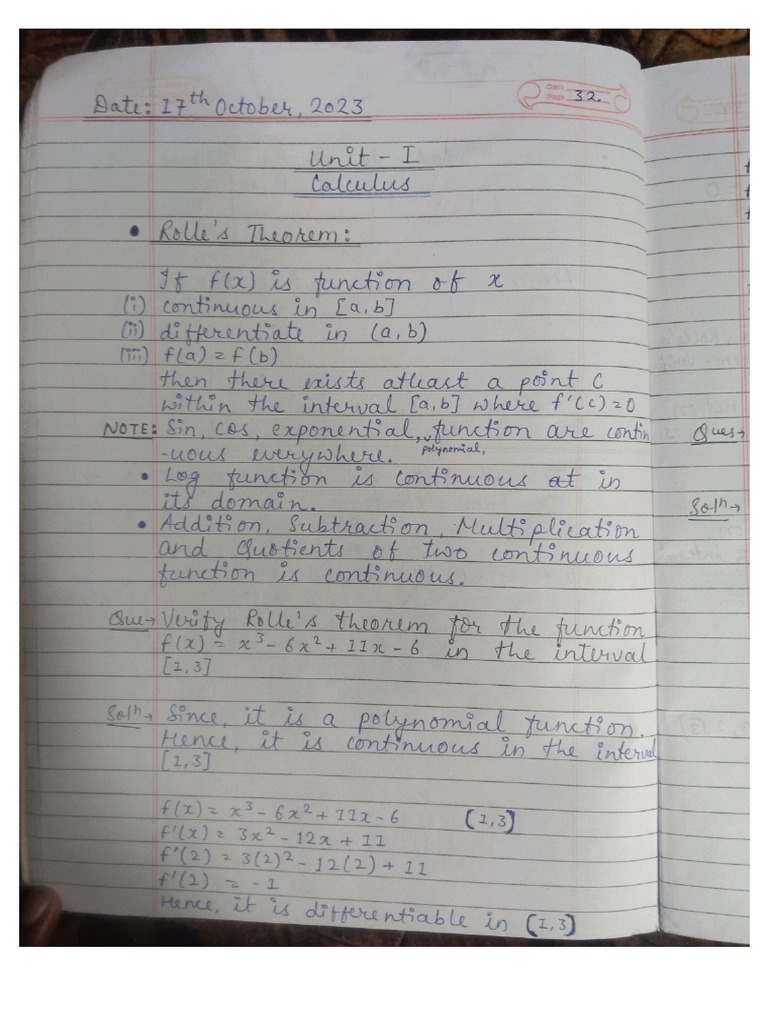 Date
Page 32.
Date: 17th October, 2023
Unit - I
Calculus
• Rolle's Theorem:
If f(x) is function of x
(i) continuous in [a,b]
(ii) differentiate in (a,b)
(iii) f(a) = f(b)
then there exists atleast a point C
within the interval [a,b] where f'(c)=0
NOTE: Sin, cos, exponential, polynomial, function are contin
-uous everywhere.
• Log function is continuous at in
its domain.
• Addition, Subtraction, Multiplication
and Quotients of two continuous
function is continuous.
Que→ Verify Rolle's theorem for the function
f(x) = x³ - 6x² + 11x - 6 in the interval
[1,3]
Soln→ Since, it is a polynomial function.
Hence, it is continuous in the interval
[1,3]
f(x) = x³ - 6x² + 11x - 6 (1,3)
f'(x) = 3x² - 12x + 11
f'(2) = 3(2)² - 12(2) + 11
f'(2) = -1
Hence, it is differentiable in (1,3)
Ques→
Soln→